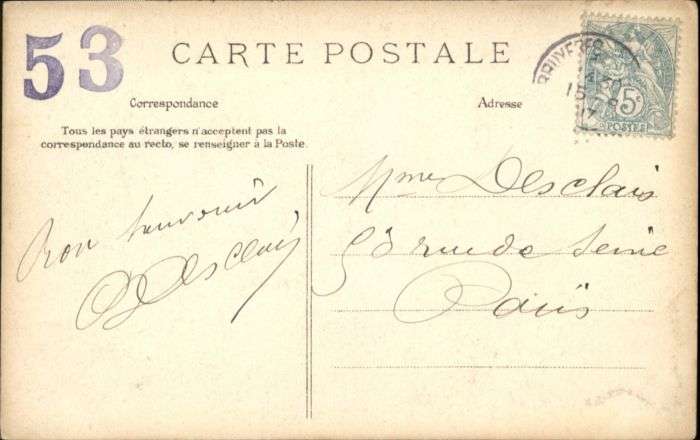 53
CARTE POSTALE
Correspondance
Adresse
Tous les pays étrangers n'acceptent pas la
correspondance au recto, se renseigner à la Poste.
BRUYERES
15
5c
POSTES
Bon souvenir
Desclais
Mme Desclais
53 rue de Seine
Paris